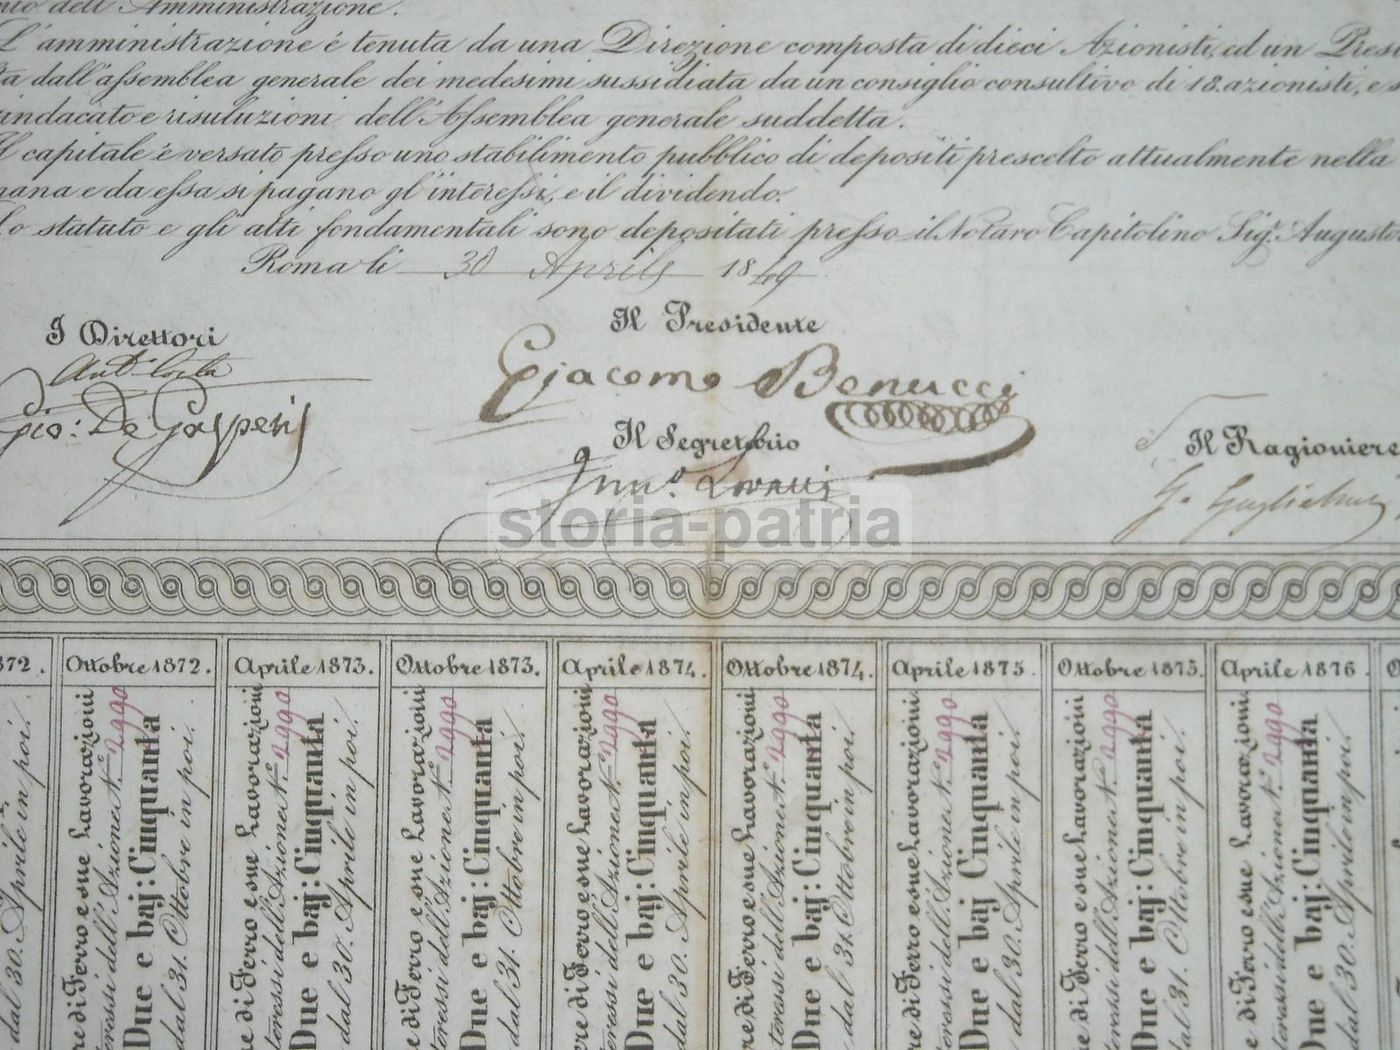 dell'Amministrazione.
L'amministrazione è tenuta da una Direzione composta di dieci Azionisti, ed un
dall'assemblea generale dei medesimi sussidiata da un consiglio consultivo di 18. azionisti, e
e risuluzioni dell'Assemblea generale suddetta.
Il capitale è versato presso uno stabilimento pubblico di depositi prescelto attualmente nella
e da essa si pagano gl'interessi, e il dividendo.
Lo statuto e gli atti fondamentali sono depositati presso il Notaro Capitolino Sigr. Augusto
Roma li 30 Aprile 1849
I Direttori
Il Presidente
Gio: De Gasperis
Giacomo Benucci
Il Segretario
Il Ragioniere
storia-patria
872.
Ottobre 1872.
Aprile 1873.
Ottobre 1873.
Aprile 1874.
Ottobre 1874.
Aprile 1875.
Ottobre 1875.
Aprile 1876
dal 30. Aprile in poi.
e di Ferro e sue Lavorazioni
teressi dell'Azione N. 2990
Due e baj: Cinquanta
dal 31. Ottobre in poi.
e di Ferro e sue Lavorazioni
teressi dell'Azione N. 2990
Due e baj: Cinquanta
dal 30. Aprile in poi.
e di Ferro e sue Lavorazioni
teressi dell'Azione N. 2990
Due e baj: Cinquanta
dal 31. Ottobre in poi.
re di Ferro e sue Lavorazioni
teressi dell'Azione N. 2990
Due e baj: Cinquanta
dal 30. Aprile in poi.
re di Ferro e sue Lavorazioni
teressi dell'Azione N. 2990
Due e baj: Cinquanta
dal 31. Ottobre in poi.
re di Ferro e sue Lavorazioni
teressi dell'Azione N. 2990
Due e baj Cinquanta
dal 30. Aprile in poi.
e di Ferro e sue Lavorazioni
teressi dell'Azione N. 2990
Due e baj: Cinquanta
dal 31. Ottobre in poi.
e di Ferro e sue Lavorazioni
teressi dell'Azione N. 2990
Due e baj: Cinquanta
dal 30. Aprile in poi.